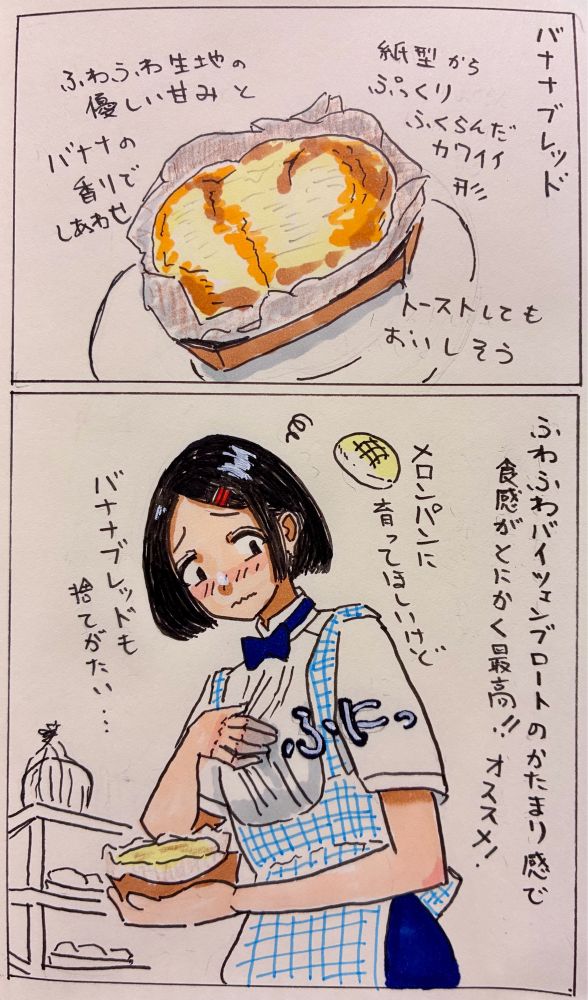 バナナブレッド
紙型から
ぷっくり
ふくらんだ
カワイイ
形
ふわふわ生地の
優しい甘みと
バナナの
香りで
しあわせ
トーストしても
おいしそう
ふわふわバイツェンブロートのかたまり感で
食感がとにかく最高!! オススメ!
メロンパンに
育ってほしいけど
バナナブレッドも
捨てがたい…
ふにっ